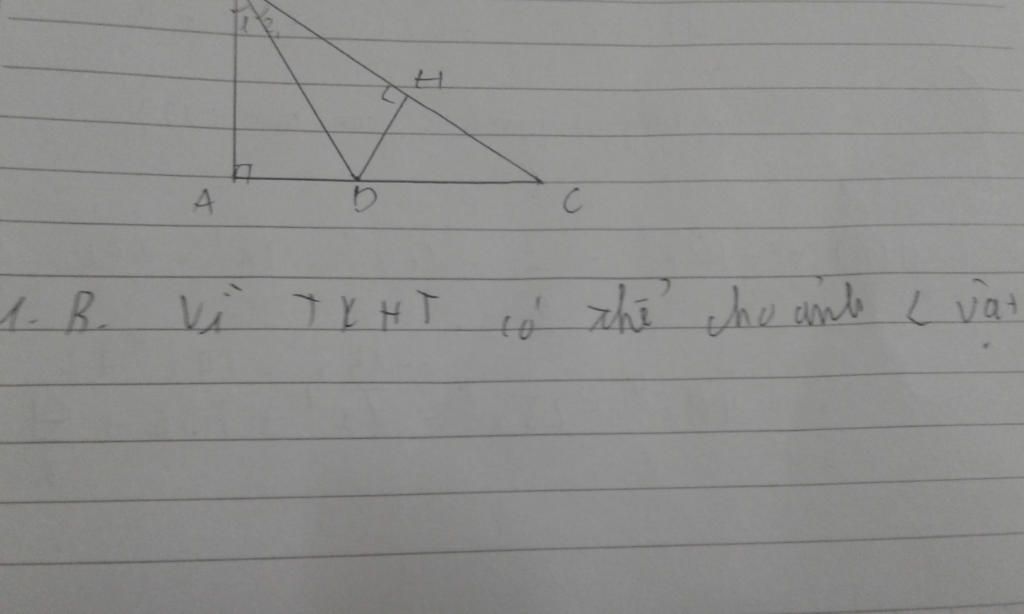 1 2
H
A D C
1. B. Vì TKHT có thể cho ảnh < vật